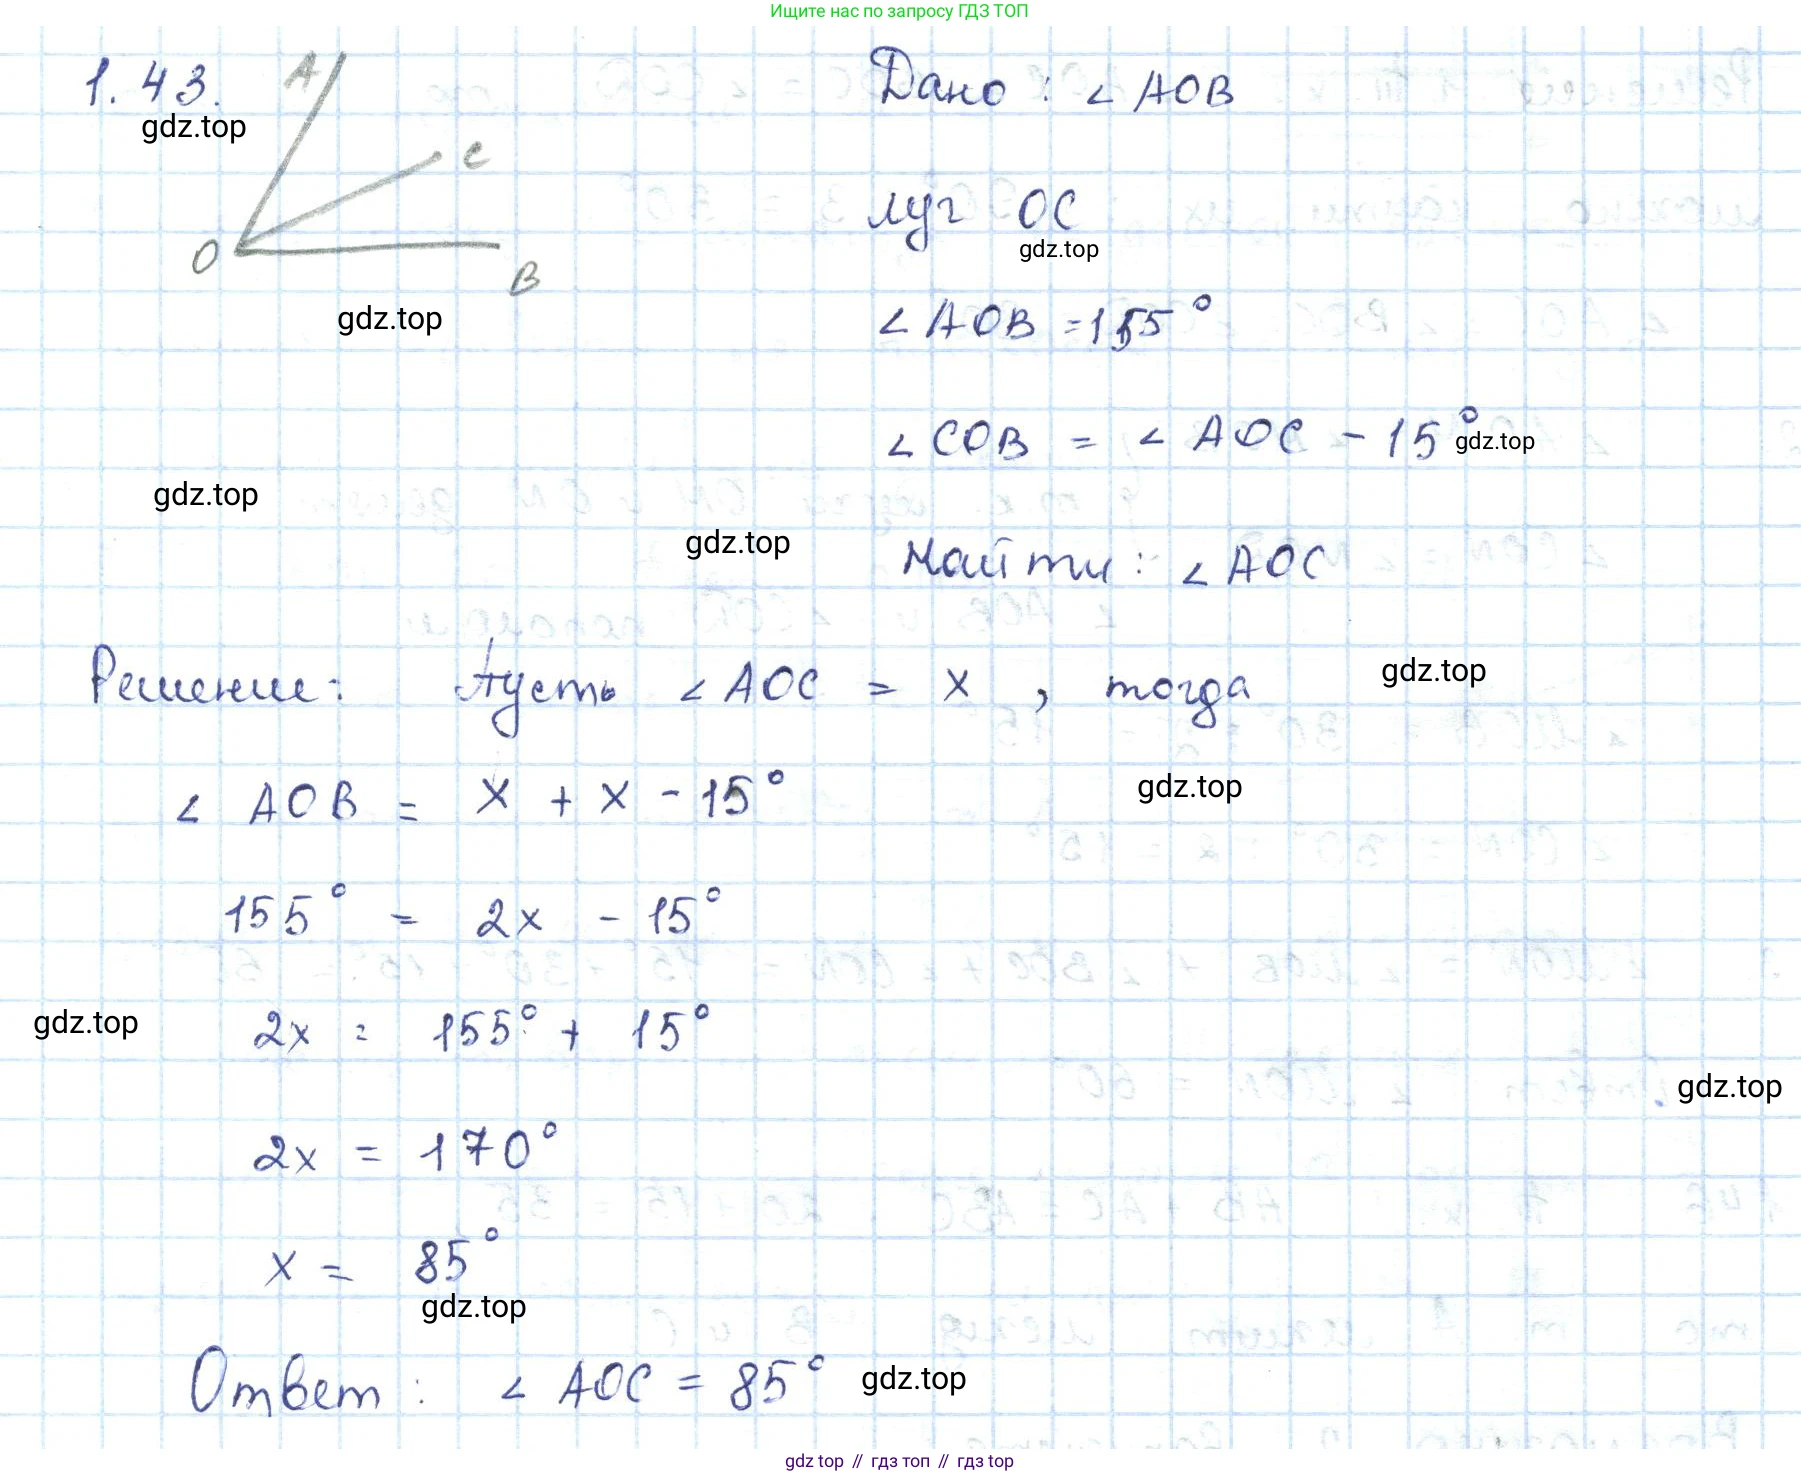 Ищите нас по запросу ГДЗ ТОП
1.43.
A
C
O
B
gdz.top
gdz.top
Дано : ∠ AOB
луч OC
gdz.top
∠ AOB = 155°
∠ COB = ∠ AOC - 15°
gdz.top
gdz.top
gdz.top
Найти : ∠ AOC
Решение: Пусть ∠ AOC = x , тогда
gdz.top
∠ AOB = x + x - 15°
gdz.top
155° = 2x - 15°
2x = 155° + 15°
gdz.top
gdz.top
2x = 170°
x = 85°
gdz.top
Ответ : ∠ AOC = 85°
gdz.top
gdz top // гдз топ // гдз top